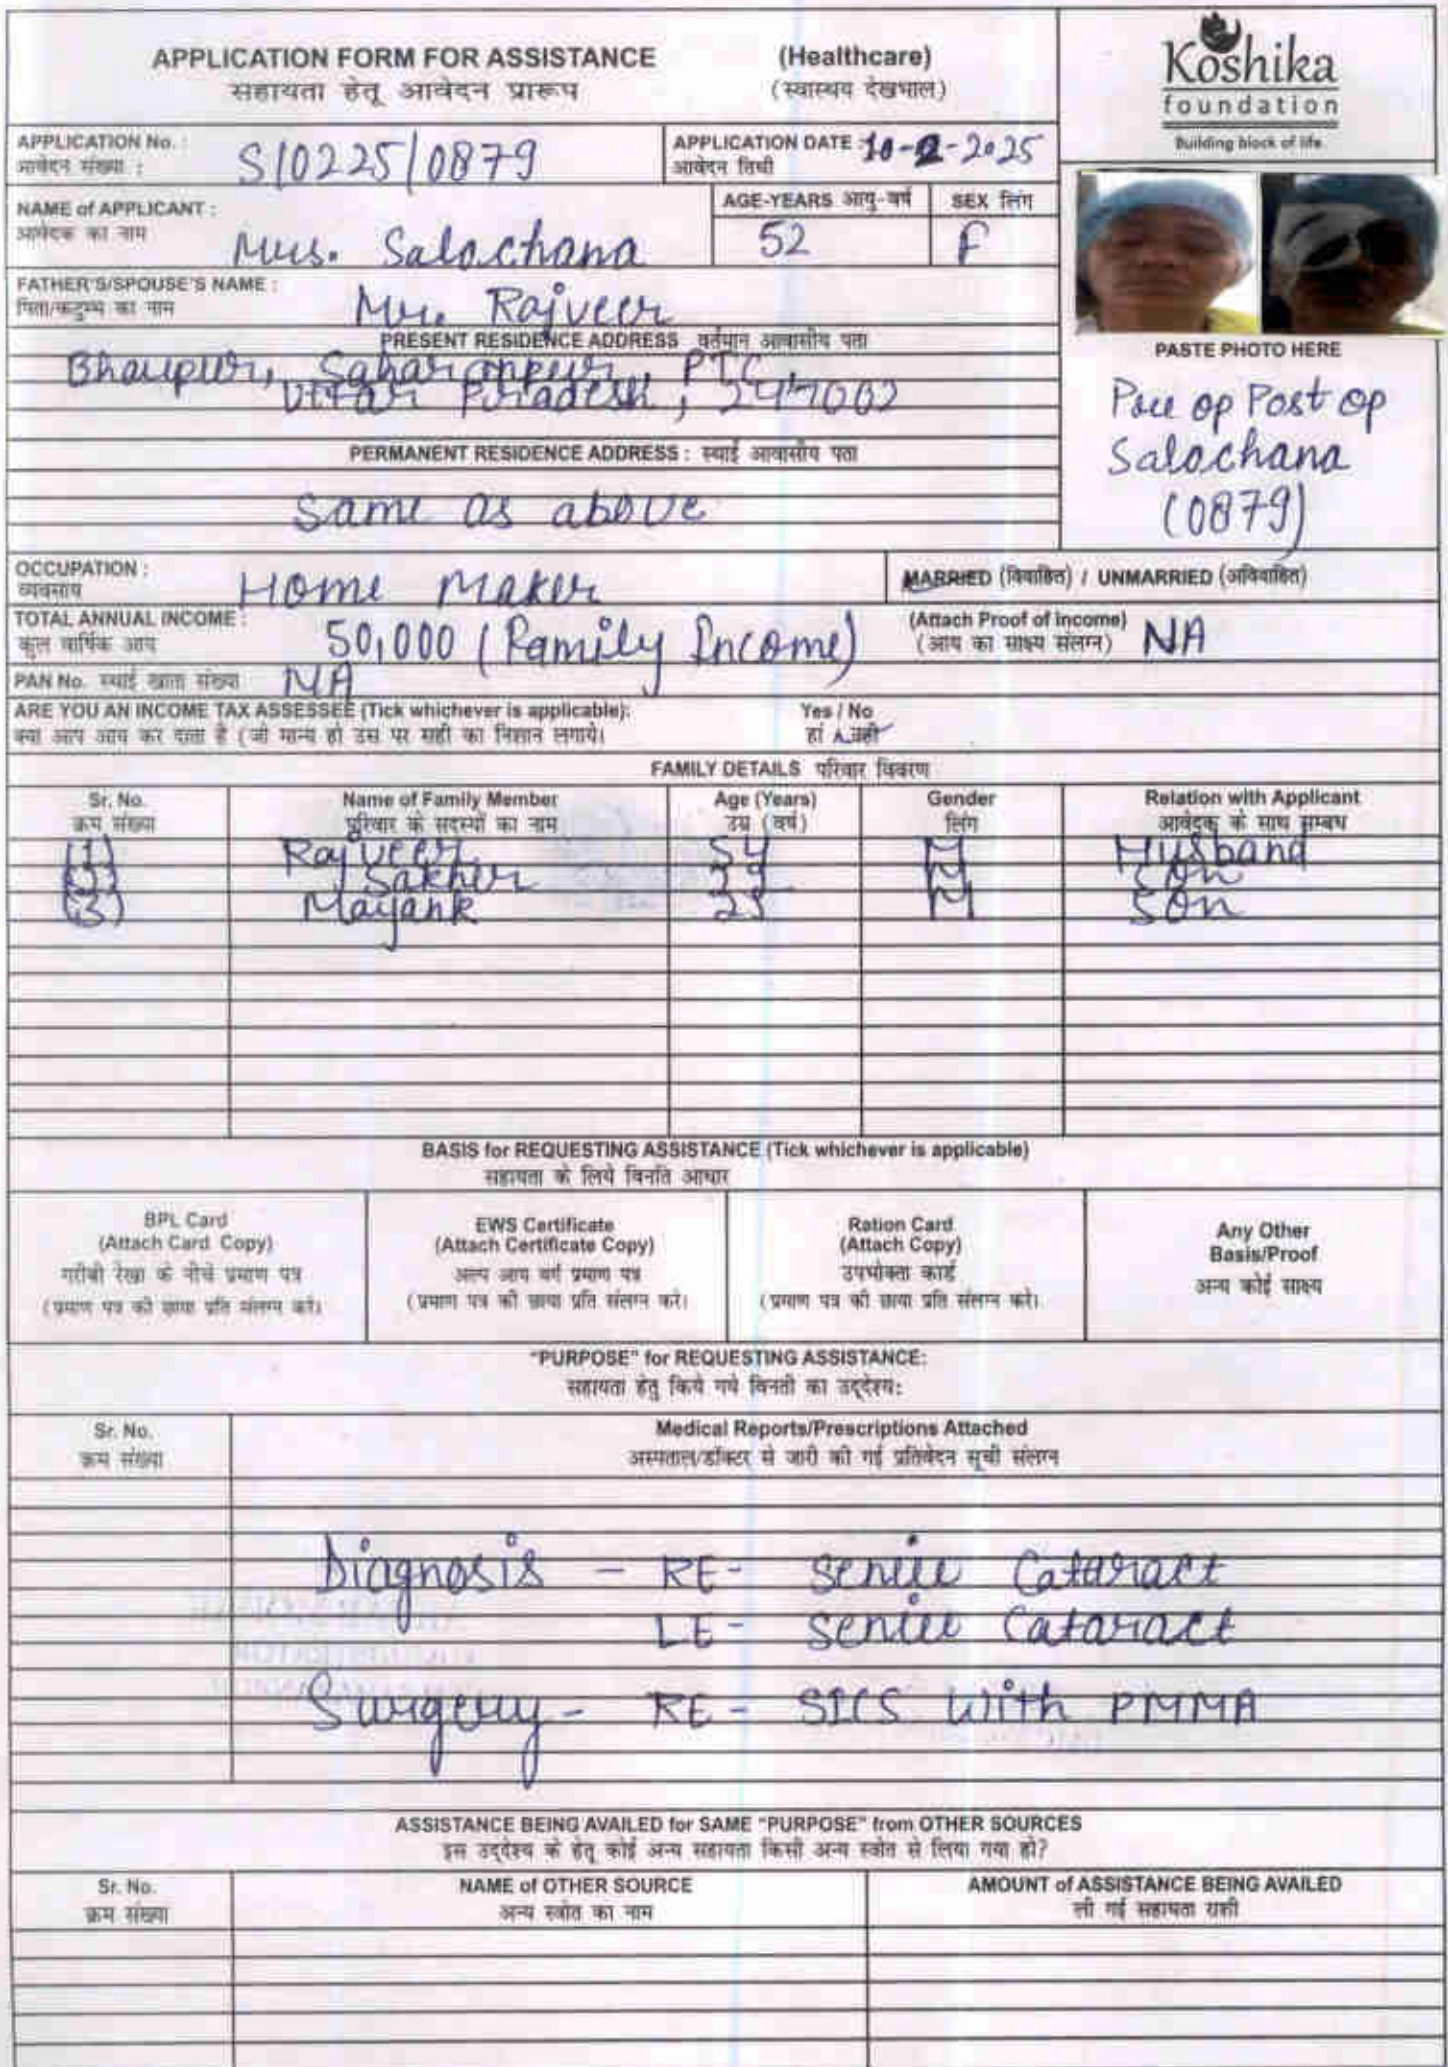 APPLICATION FORM FOR ASSISTANCE (Healthcare)
सहायता हेतू आवेदन प्रारूप (स्वास्थय देखभाल)
Koshika
foundation
Building block of life
APPLICATION No. :
आवेदन संख्या :
S/0225/0879
APPLICATION DATE : 10-2-2025
आवेदन तिथी
NAME of APPLICANT :
आवेदक का नाम
Mrs. Salochana
AGE-YEARS आयु-वर्ष
52
SEX लिंग
F
FATHER'S/SPOUSE'S NAME :
पिता/कटुम्ब का नाम
Mr. Rajveer
PRESENT RESIDENCE ADDRESS वर्तमान आवासीय पता
Saharanpur, PTC
Uttar Pradesh, 247002
PERMANENT RESIDENCE ADDRESS : स्थाई आवासीय पता
Same as above
PASTE PHOTO HERE
Pre op Post op
Salochana
(0879)
OCCUPATION :
व्यवसाय
Home Maker
MARRIED (विवाहित) / UNMARRIED (अविवाहित)
TOTAL ANNUAL INCOME :
कुल वार्षिक आय
50,000 (Family Income)
(Attach Proof of Income)
(आय का साक्ष्य संलग्न)
NA
PAN No. स्थाई खाता संख्या NA
ARE YOU AN INCOME TAX ASSESSEE (Tick whichever is applicable): Yes / No
क्या आप आय कर दाता है (जो मान्य हो उस पर सही का निशान लगाये। हां / नहीं
FAMILY DETAILS परिवार विवरण
Sr. No. Name of Family Member Age (Years) Gender Relation with Applicant
क्रम संख्या परिवार के सदस्यों का नाम उम्र (वर्ष) लिंग आवेदक के साथ सम्बध
(1) Rajveer 54 M Husband
(2) M Son
(3) Mayank M Son
BASIS for REQUESTING ASSISTANCE (Tick whichever is applicable)
सहायता के लिये विनति आधार
BPL Card
(Attach Card Copy)
गरीबी रेखा के नीचे प्रमाण पत्र
(प्रमाण पत्र की छाया प्रति संलग्न करे।
EWS Certificate
(Attach Certificate Copy)
अल्प आय वर्ग प्रमाण पत्र
(प्रमाण पत्र की छाया प्रति संलग्न करे।
Ration Card
(Attach Copy)
उपभोक्ता कार्ड
(प्रमाण पत्र की छाया प्रति संलग्न करे।
Any Other
Basis/Proof
अन्य कोई साक्ष्य
"PURPOSE" for REQUESTING ASSISTANCE:
सहायता हेतु किये गये विनती का उद्देश्य:
Sr. No. Medical Reports/Prescriptions Attached
क्रम संख्या अस्पताल/डॉक्टर से जारी की गई प्रतिवेदन सूची संलग्न
Diagnosis - RE- Senile Cataract
LE- Senile Cataract
Surgery - RE - SICS With PMMA
ASSISTANCE BEING AVAILED for SAME "PURPOSE" from OTHER SOURCES
इस उद्देश्य के हेतू कोई अन्य सहायता किसी अन्य स्त्रोत से लिया गया हो?
Sr. No. NAME of OTHER SOURCE AMOUNT of ASSISTANCE BEING AVAILED
क्रम संख्या अन्य स्त्रोत का नाम ली गई सहायता राशी